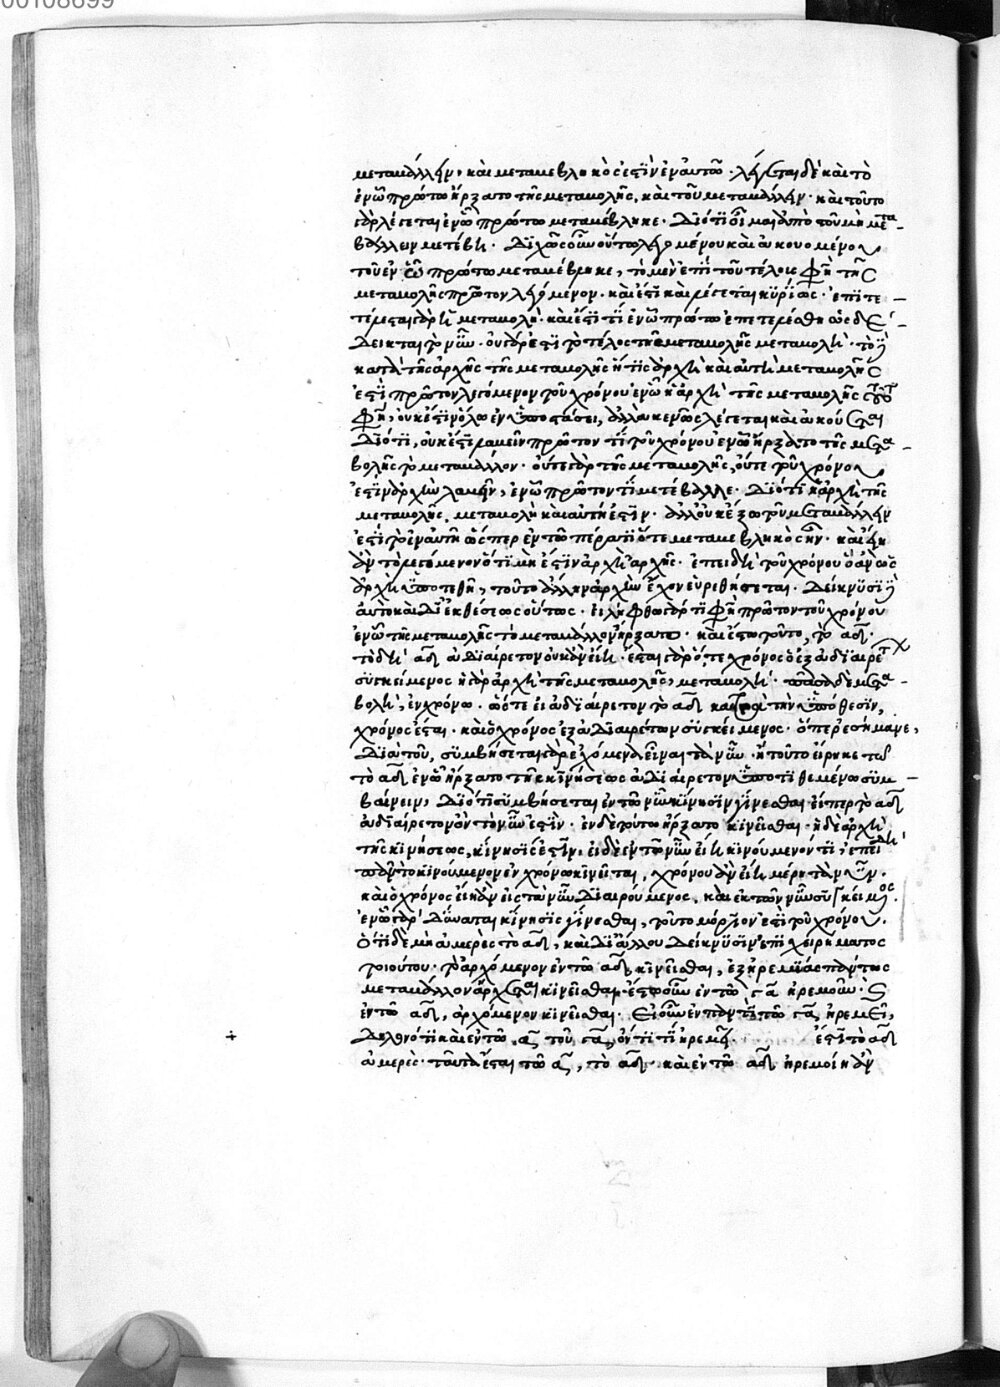 00108699
μεταβάλλειν, καὶ μεταβεβληκός ἐστιν ἐν αὐτῷ. λέγεται δὲ καὶ τὸ
ἐν ᾧ πρώτῳ ἤρξατο τῆς μεταβολῆς, καὶ τοῦ μεταβάλλειν. καὶ τοῦτο
γὰρ λέγεται ἐν ᾧ πρώτῳ μεταβέβληκε. Διότι
βάλλειν μετέβη. Διχῶς οὖν οὕτω λεγομένου καὶ ἀκουομένου
τοῦ ἐν ᾧ πρώτῳ μεταβέβληκε, τὸ μὲν ἐπὶ τοῦ τέλους φησὶ τῆς
μεταβολῆς πρῶτον λεγόμενον. καὶ ἔστι καὶ λέγεται κυρίως. ἐπιτε
τέλεσται γὰρ ἡ μεταβολή. καὶ ἔστι τι ἐν ᾧ πρώτῳ ἐπετελέσθη ὡς δέ
δεικται τὸ νῦν. οὐ γάρ ἐστι τὸ τέλος τῆς μεταβολῆς μεταβολή. τὸ δὲ
κατὰ τῆς ἀρχῆς τῆς μεταβολῆς ἥτις ἀρχὴ καὶ αὐτὴ μεταβολῆς
ἐστι πρῶτον λεγόμενον τοῦ χρόνου ἐν ᾧ ἡ ἀρχὴ τῆς μεταβολῆς τοῦτό
φησι, οὐκ ἔστιν ὅλως ἐν ὑποστάσει, ἀλλὰ κενῶς λέγεται καὶ ἀκούεται
Διότι, οὐκ ἔστι λαβεῖν πρῶτόν τι τοῦ χρόνου ἐν ᾧ ἤρξατο τῆς μετα
βολῆς τὸ μεταβάλλον. οὔτε γὰρ τῆς μεταβολῆς, οὔτε τοῦ χρόνου
ἔστιν ἀρχὴν λαβεῖν, ἐν ᾧ πρῶτόν τι μετέβαλλε. Διότι ἡ ἀρχὴ τῆς
μεταβολῆς, μεταβολὴ καὶ αὐτή ἐστιν. ἀλλ' οὐκ ἔξω τοῦ μεταβάλλειν
ἐστὶ τὸ ἐν αὐτῇ ὥσπερ ἐν τῷ πέρατι ὅτε μεταβεβληκὸς ἦν. καὶ εἴη
ἂν τὸ λεγόμενον ὅτι μὴ ἔστιν ἀρχὴ ἀρχῆς. ἐπειδὴ τοῦ χρόνου ὃ ἂν ὡς
ἀρχὴ ὑποτεθῇ, τοῦτο ἄλλην ἀρχὴν ἔχον εὑρεθήσεται. Δείκνυσι δὲ
αὐτὸ καὶ δι' ἐκθέσεως οὕτως. εἰλήφθω γάρ τι φησὶ πρῶτον τοῦ χρόνου
ἐν ᾧ τῆς μεταβολῆς τὸ μεταβάλλον ἤρξατο. καὶ ἔστω τοῦτο, τὸ αδ.
τὸ δὴ αδ ἀδιαίρετον οὐκ ἂν εἴη. ἔσται γὰρ ὅ,τε χρόνος ὁ ἐξ ἀδιαιρέτων
συγκείμενος ἡ γὰρ ἀρχὴ τῆς μεταβολῆς, μεταβολή. πᾶσα δὲ μετα
βολή, ἐν χρόνῳ. ὥστε εἰ ἀδιαίρετον τὸ αδ κατὰ τὴν ὑπόθεσιν,
χρόνος ἔσται. καὶ ὁ χρόνος ἐξ ἀδιαιρέτων συγκείμενος. ὅπερ ἐσήμανε,
διὰ τοῦ, συμβήσεται γὰρ ἐχόμενα εἶναι τὰ νῦν. ἢ τοῦτο εἴρηκε τῷ
τὸ αδ ἐν ᾧ ἤρξατο τῆς κινήσεως ἀδιαίρετον ὑποτιθεμένῳ συμ
βαίνειν, διότι συμβήσεται ἐν τῷ νῦν κίνησιν γίνεσθαι εἴπερ τὸ αδ
ἀδιαίρετον ὂν τὸ νῦν ἐστιν. ἐν δὲ τούτῳ ἤρξατο κινεῖσθαι. ἡ δὲ ἀρχὴ
τῆς κινήσεως, κίνησίς ἐστιν, εἰ δὲ ἐν τῷ νῦν εἴη κινούμενόν τι, ἐπεὶ
πᾶν τὸ κινούμενον ἐν χρόνῳ κινεῖται, χρόνου ἂν εἴη μέρη τὰ νῦν.
καὶ ὁ χρόνος εἴη ἂν εἰς τὰ νῦν διαιρούμενος, καὶ ἐκ τῶν νῦν συγκείμενος.
ἐν ᾧ γὰρ δύναται κίνησις γίνεσθαι, τοῦτο μόριόν ἐστι τοῦ χρόνου.
Ὅτι δὲ μὴ ἀμερὲς τὸ αδ, καὶ δι' ἄλλου δείκνυσιν ἐπιχειρήματος
τοιούτου. τὸ ἀρχόμενον ἐν τῷ αδ κινεῖσθαι, ἐξ ἠρεμίας πάντως
μεταβάλλον ἄρχεται κινεῖσθαι. ἔστω οὖν ἐν τῷ γα ἠρεμοῦν. καὶ
ἐν τῷ αδ, ἀρχόμενον κινεῖσθαι. Εἰ οὖν ἐν παντὶ τῷ γα, ἠρεμεῖ,
δῆλον ὅτι καὶ ἐν τῷ α, τοῦ γα, ὄντι τι ἠρεμεῖ. ἔστι τὸ αδ
ἀμερὲς. ταὐτὰ ἔσται τῷ α, τὸ αδ. καὶ ἐν τῷ αδ ἠρεμοίη ἂν